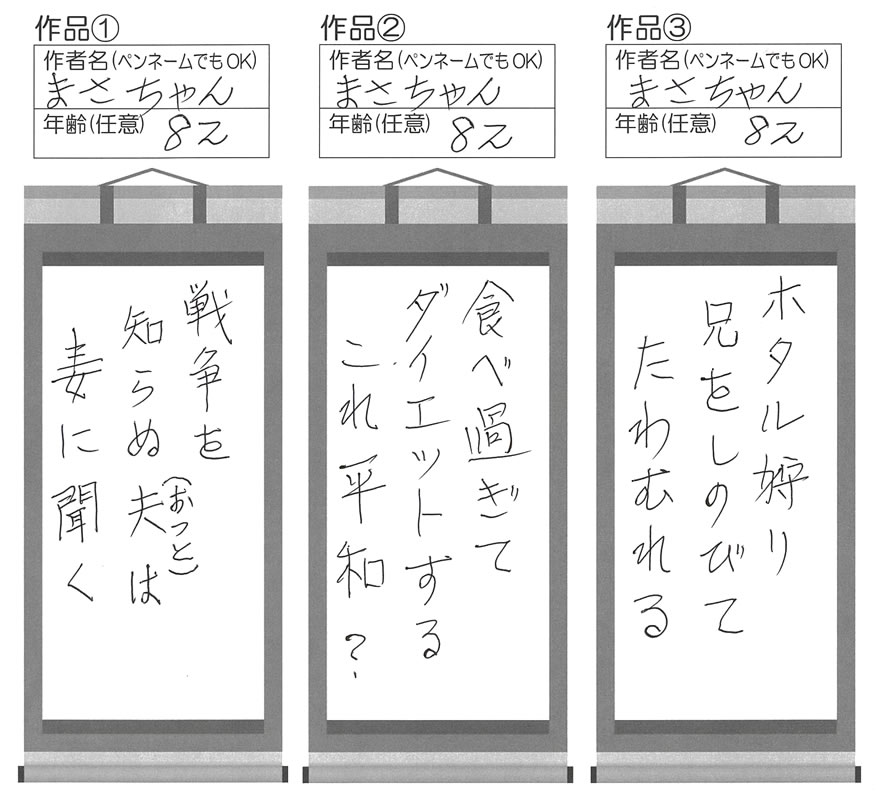 作品①
作者名(ペンネームでもOK)
まさちゃん
年齢(任意) 82
戦争を
知らぬ夫(おっと)は
妻に聞く
作品②
作者名(ペンネームでもOK)
まさちゃん
年齢(任意) 82
食べ過ぎて
ダイエットする
これ平和?
作品③
作者名(ペンネームでもOK)
まさちゃん
年齢(任意) 82
ホタル狩り
兄をしのびて
たわむれる